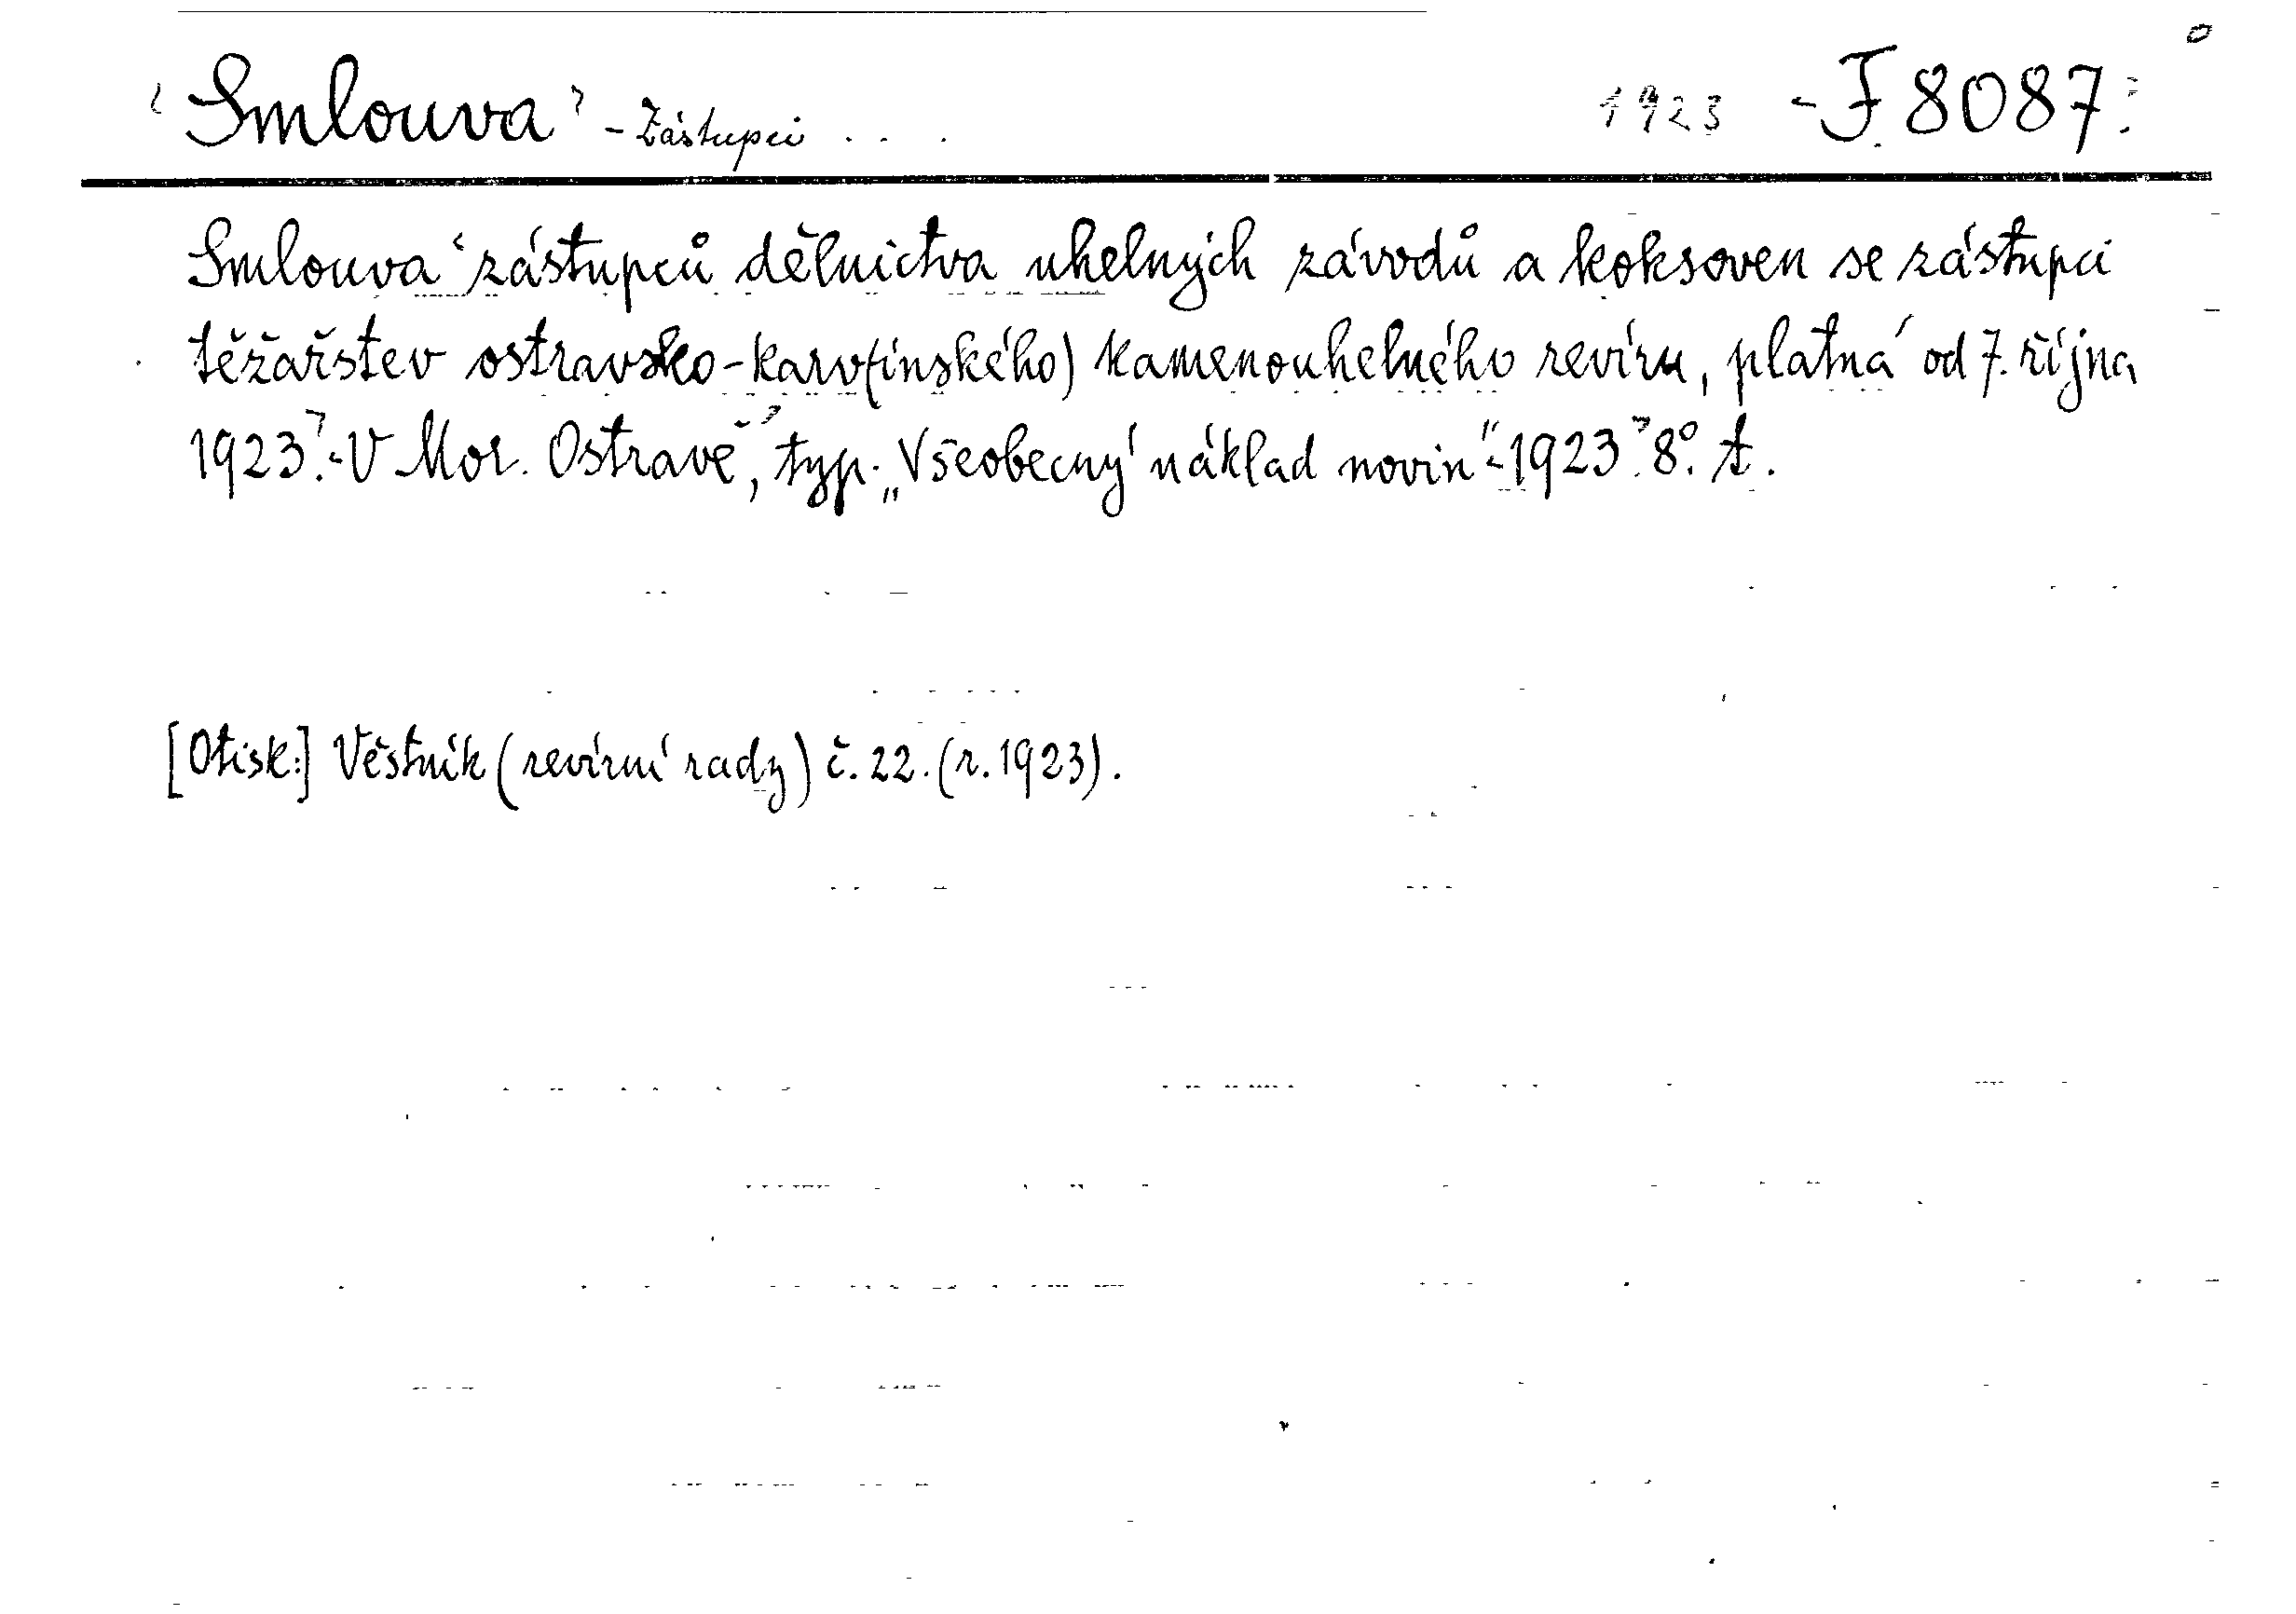 Smlouva - Zástupci . . . 1923 - J 8087.
Smlouva zástupců dělnictva uhelných závodů a koksoven se zástupci
těžařstev ostravsko-karv(ínského) kamenouhelného revíru, platná od 7. října
1923. - V Mor. Ostravě, typ. „Všeobecný náklad novin" - 1923. 8°. A.
[Otisk:] Věstník (revírní rady) č. 22. (r. 1923).